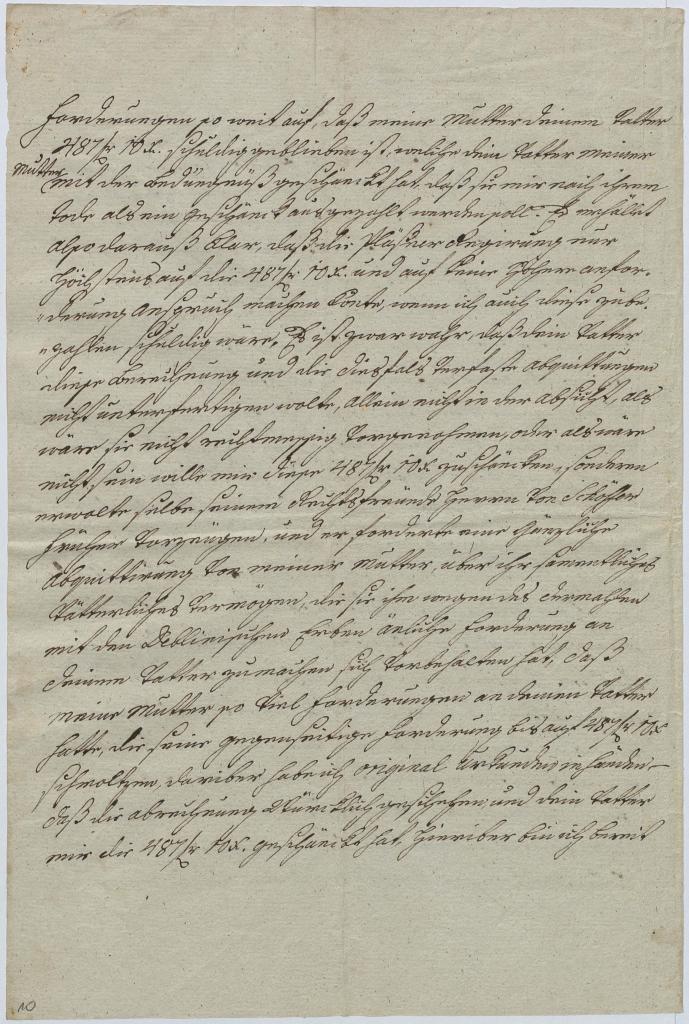 forderungen so weit auf, daß meine Mutter deinem Vatter
487 fr 10 x. schuldig geblieben ist, welche dein Vatter meiner
Mutter mit der Bedüngnüß geschänckt hat, daß sie mir nach ihrem
Tode als ein geschänck ausgezahlt werden soll. Es erhället
also darauß klar, daß die Regirung nur
höchstens auf die 487 fr 10 x. und auf keine höhere anfor-
derung anspruch machen könte, wenn ich auch diese zube-
zahlen schuldig wäre. Es ist zwar wahr, daß dein Vatter
diese berechnung und die diesfals verfaste abquittungen
nicht unterfertigen wolte, allein nicht in der absicht, als
wäre sie nicht rechtmessig vorgenohmen, oder als wäre
nicht sein wille mir diese 487 fr 10 x zuschäncken, sonderen
er wolte selbe seinem Rechtsfreunde Herrn von
früher vorzeügen, und er forderte eine gänzliche
abquittirung von meiner Mutter, über ihr sammentliches
Vätterliches Vermögen, die sie ihm wegen des dermahlen
mit den Erben änliche forderung an
deinem Vatter zumachen sich vorbehalten hat, daß
meine Mutter so viel forderungen an deinen Vatter
hatte, die seine gegenseitige forderung bis auf 487 fr 10 x
schmoltzen, dariber habe ich original Urkunden in händen
daß die abrechnung würcklich geschehen, und dein Vatter
mir die 487 fr 10 x. geschänckt hat, hieriber bin ich bereit
10